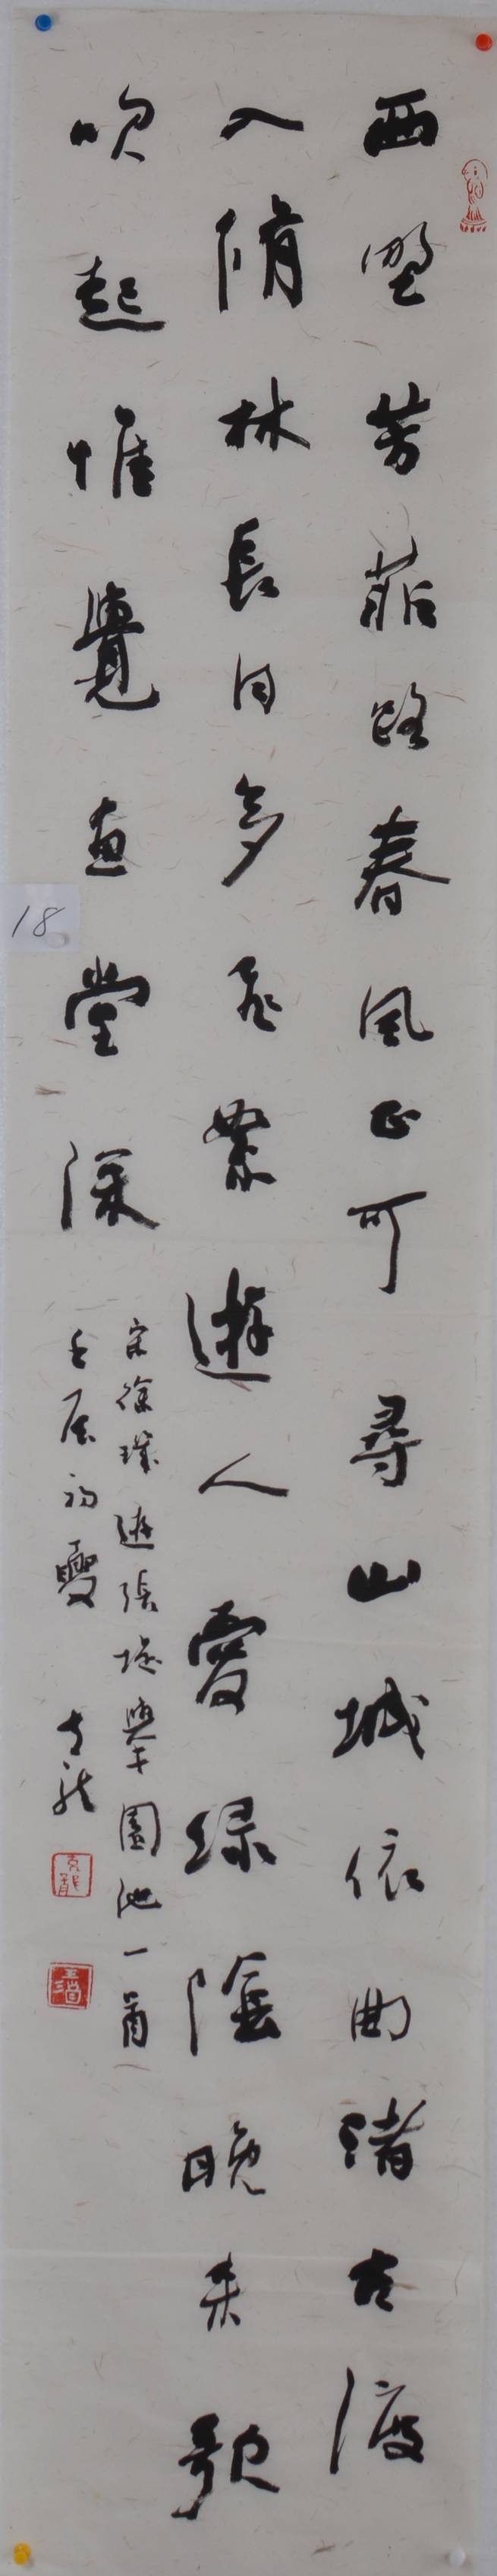 西野芳菲路春風正可尋山城依曲渚古渡
入脩林長日多飛絮遊人愛綠陰晚来歌
吹起惟覺畫堂深
宋徐璣遊張提舉園池一首
壬辰初夏
18